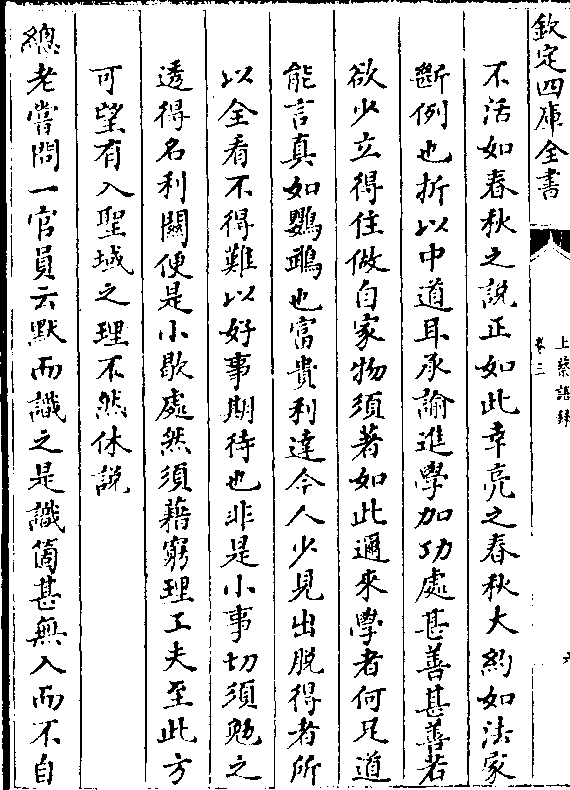 欽定四庫全書
上蔡語録
卷三
六
不活如春秋之說正如此幸亮之春秋大約如法家
斷例也折以中道耳承諭進學加功處甚善甚善若
欲少立得住做自家物須著如此邇來學者何足道
能言真如鸚鵡也富貴利達今人少見出脫得者所
以全看不得難以好事期待也非是小事切須勉之
透得名利關便是小歇處然須藉窮理工夫至此方
可望有入聖域之理不然休説
總老嘗問一官員云默而識之是識箇甚無入而不自